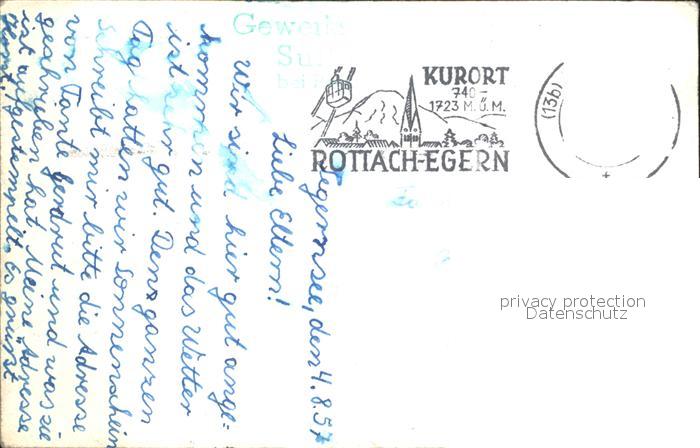 Gewerk
Su
bei
KURORT
740-
1723 M.Ü.M.
ROTTACH-EGERN
(13b)
Tegernsee, den 4.8.57
Liebe Eltern!
Wir sind hier gut ange-
kommen und das Wetter
ist sehr gut. Den ganzen
Tag hatten wir Sonnenschein
Schreibt mir bitte die Adresse
von Tante Gerdrut und was sie
geschrieben hat. Meine Adresse
ist aufgestempelt. Es grüßt
Horst.
privacy protection
Datenschutz